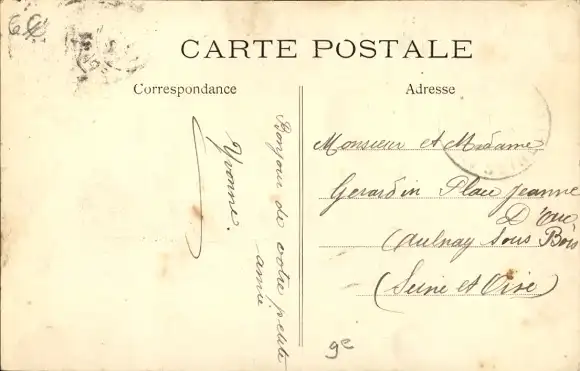 CARTE POSTALE
Correspondance
Adresse
Bonjour de votre petite
amie
Yvonne.
Monsieur et Madame
Gerardin Place Jeanne
D'arc
(Aulnay sous Bois
(Seine et Oise)
9e